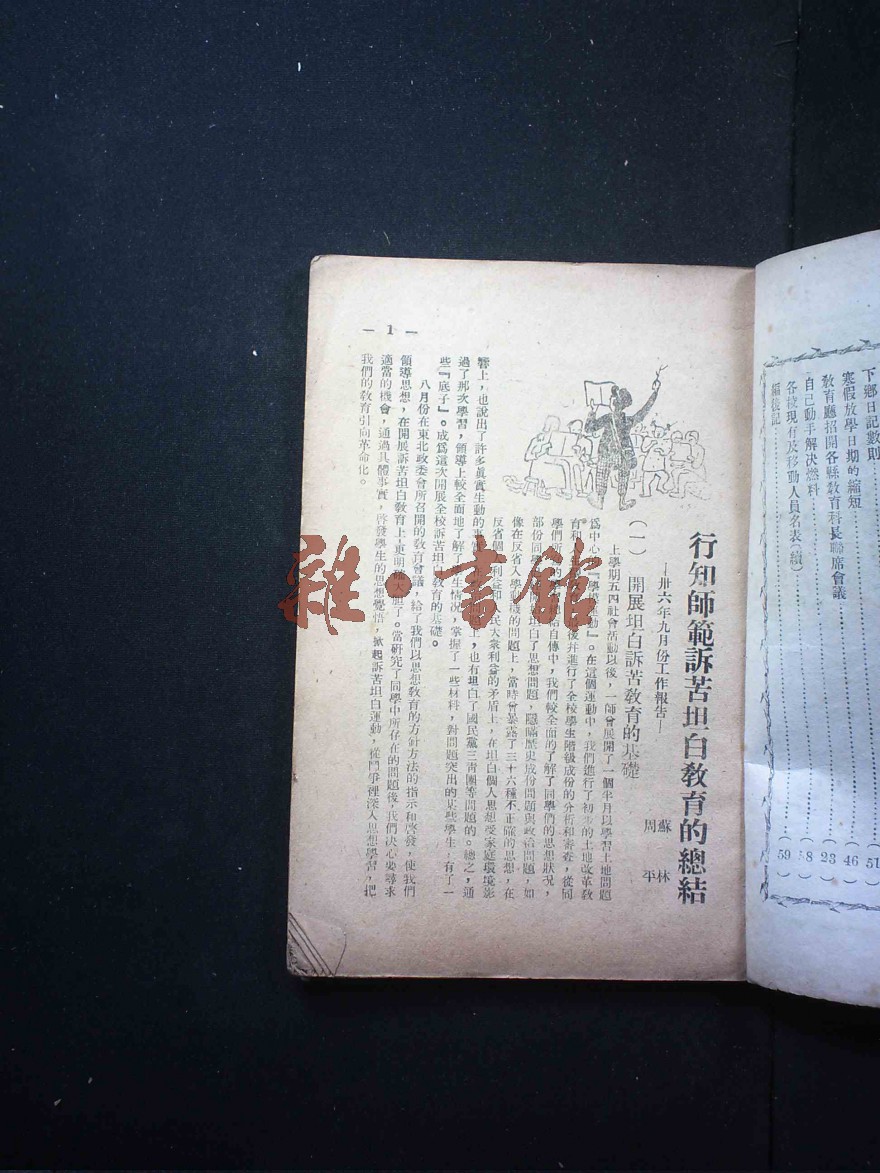 下鄉日記數則……51）
寒假放學日期的縮短……（46）
教育廳招開各縣教育科長聯席會議……（23）
自己動手解決燃料……（58）
各校現有及移動人員名表（續）……（59）
編後記
行知師範訴苦坦白教育的總結
—卅六年九月份工作報告—
蘇林
周平
（一）開展坦白訴苦教育的基礎
上學期五四社會活動以後，一師曾展開了一個半月以學習土地問題
爲中心的『學 動』。在這個運動中，我們進行了初步的土地改革教
育和 後并進行了全校學生階級成份的分析和審查，從同
學們 自傳中，我們較全面的了解了同學們的思想狀況，
部份同學 坦白了思想問題，隱瞞歷史成份問題與政治問題，如
像在反省入學動機的問題上，當時曾暴露了三十六種不正確的思想，在
反省個人利益和人民大衆利益的矛盾上，在坦白個人思想受家庭環境影
響上，也說出了許多真實生動的事 上，也有坦白了國民黨三青團等問題的。總之，通
過了那次學習，領導上較全面地了解了學生情況，掌握了一些材料，對問題突出的某些學生，有了一
些『底子』。成爲這次開展全校訴苦坦白教育的基礎。
八月份在東北政委會所召開的教育會議，給了我們以思想教育的方針方法的指示和啓發，使我們
領導思想，在開展訴苦坦白教育上，更明確大胆了。當研究了同學中所存在的問題後，我們決心要尋求
適當的機會，通過具體事實，啓發學生的思想覺悟，掀起訴苦坦白運動，從鬥爭裡深入思想學習，把
我們的教育引向革命化。
— 1 —
雜·書館